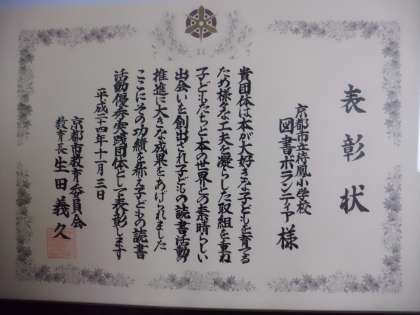 表彰状
京都市立待鳳小学校
図書ボランティア 様
貴団体は本が大好きな子どもを育てる
ため様々な工夫を凝らした取組を重ね
子どもたちと本の世界との素晴らしい
出会いを創出され子どもの読書活動
推進に大きな成果をあげられました
ここにその功績を称え子どもの読書
活動優秀実践団体として表彰します
平成二十四年十一月三日
京都市教育委員会
教育長 生田義久